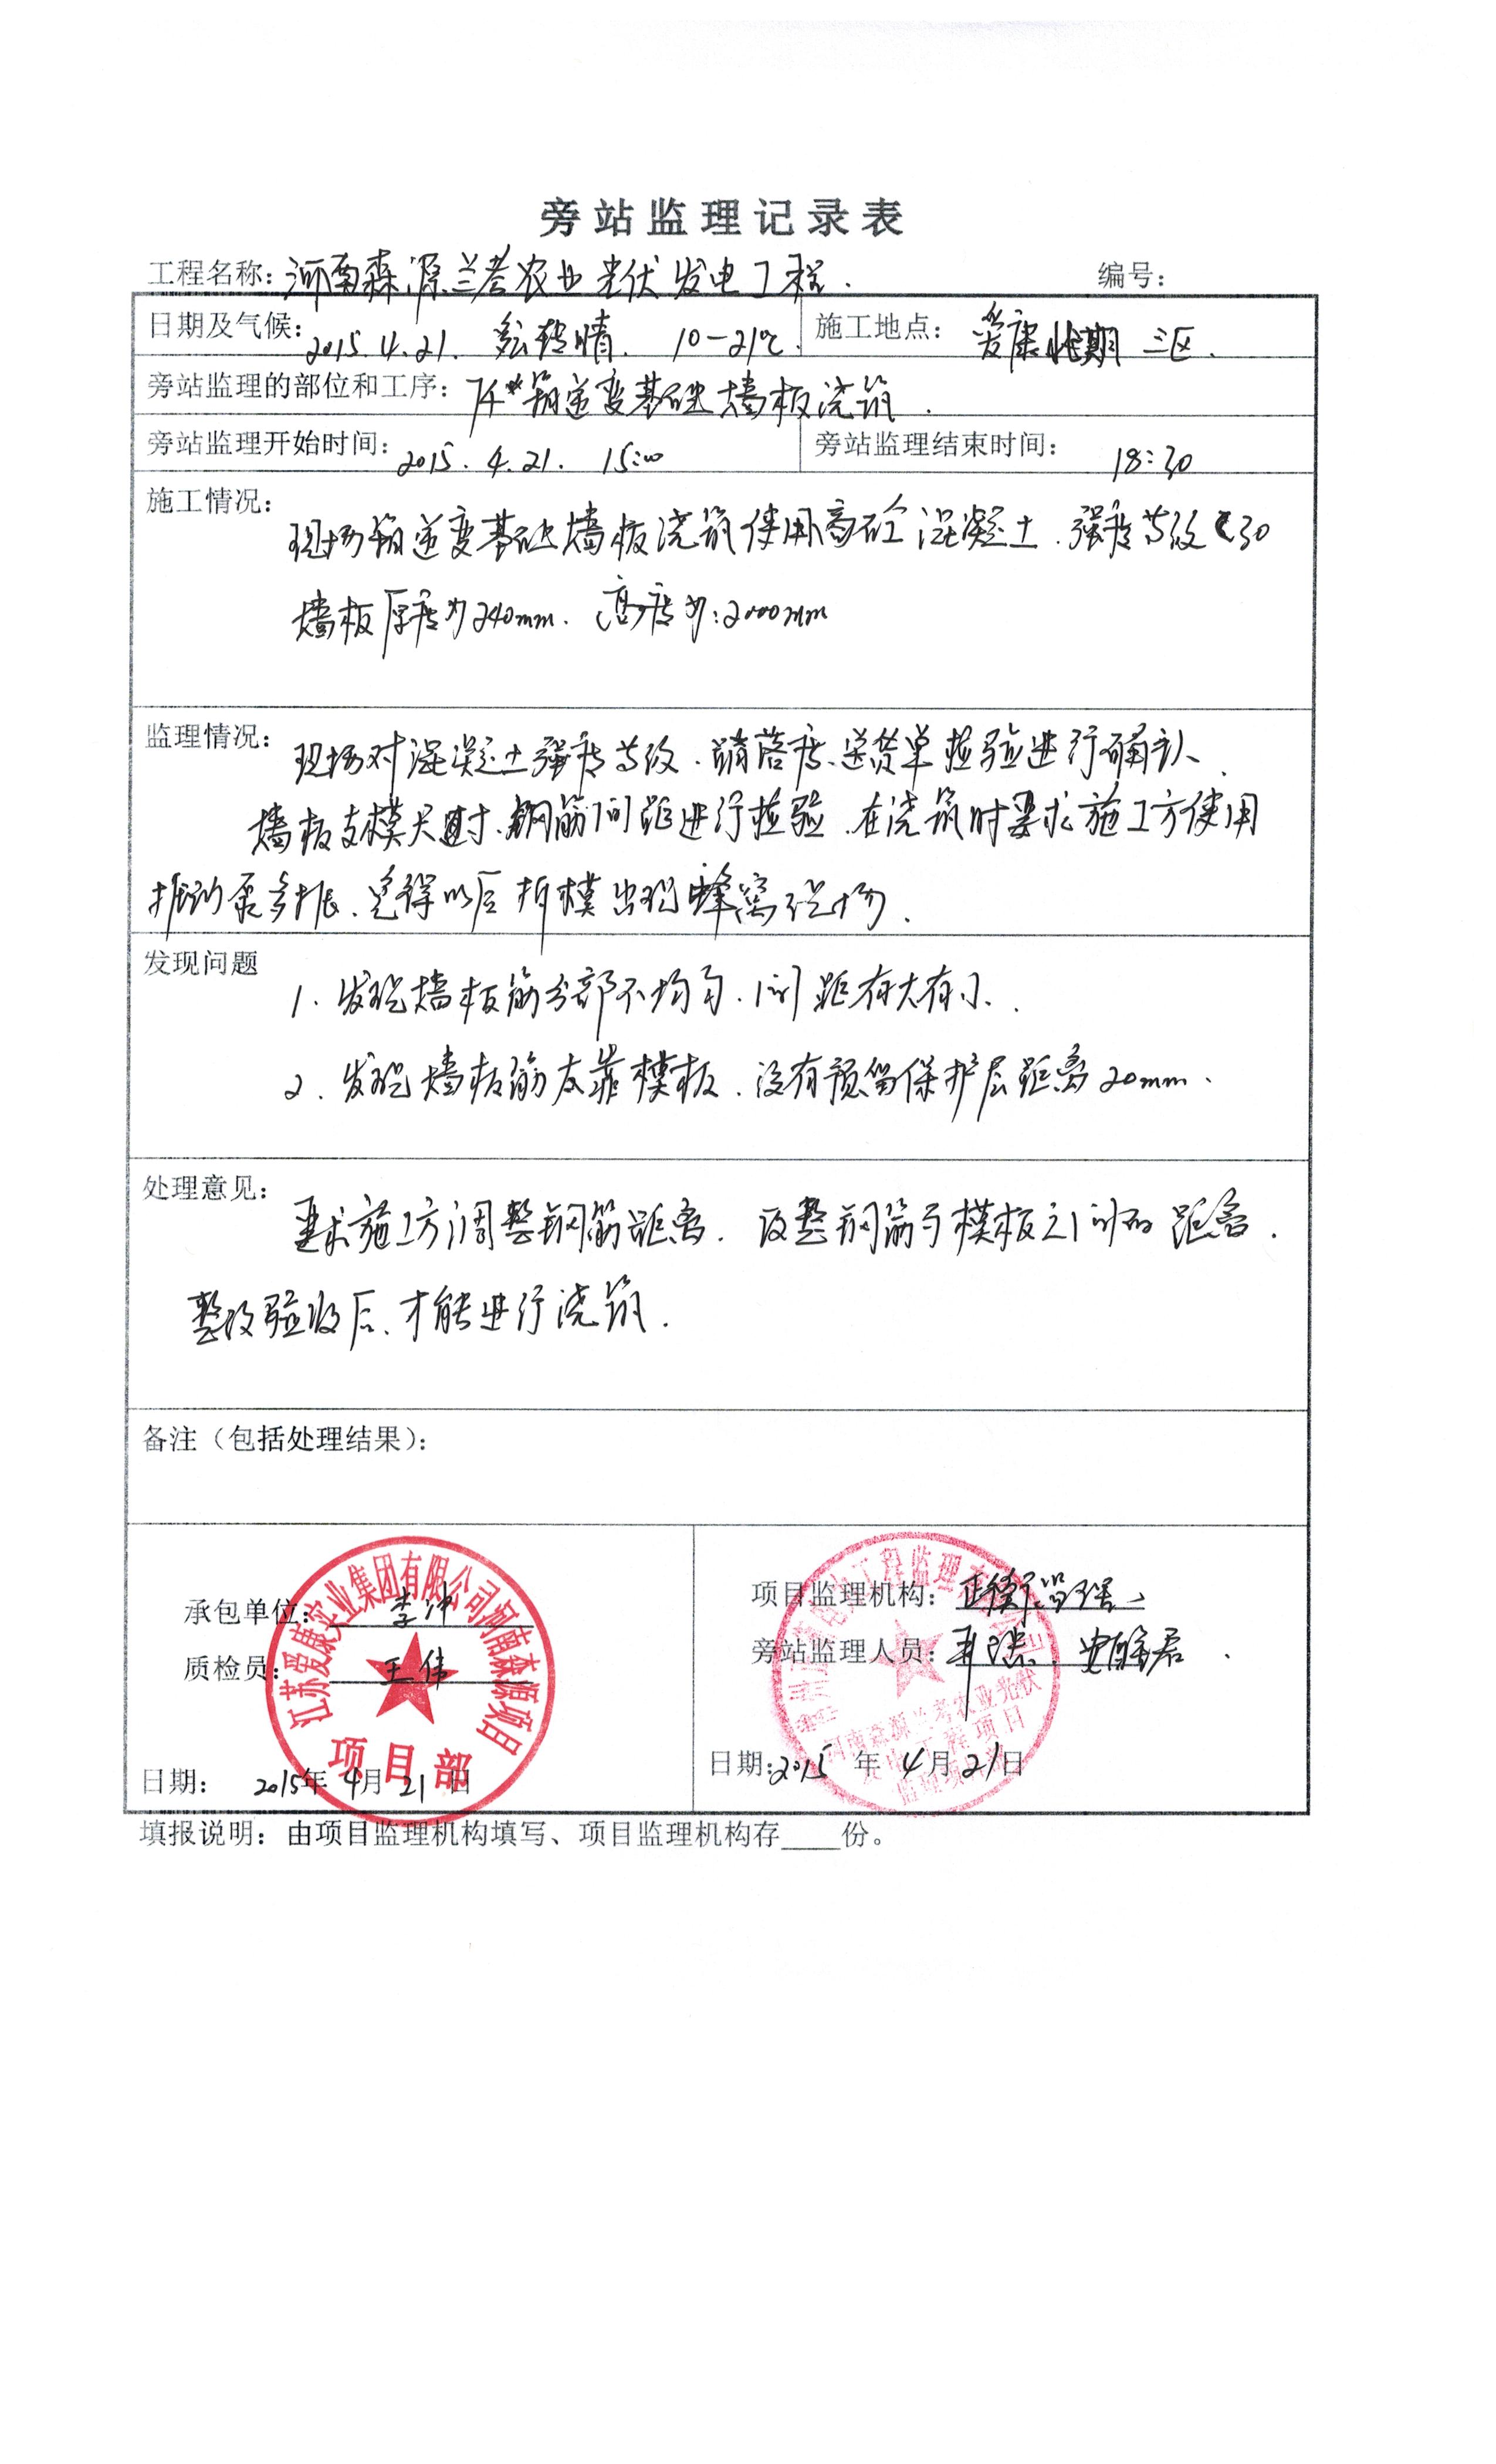 旁站监理记录表
工程名称：河南森源兰考农业光伏发电工程. 编号：
日期及气候：2015.4.21. 多云转晴. 10-21℃. 施工地点：爱康 三区.
旁站监理的部位和工序：7#箱逆变基础墙板浇筑.
旁站监理开始时间：2015.4.21. 15:00 旁站监理结束时间： 18:30
施工情况：
现场箱逆变基础墙板浇筑使用商砼混凝土.强度等级C30
墙板厚度为240mm. 高度为:2000mm
监理情况：
现场对混凝土强度等级.塌落度.送货单检验进行确认.
墙板支模尺寸.钢筋间距进行检验.在浇筑时要求施工方使用
振动泵多振.免得以后拆模出现蜂窝现场.
发现问题
1.发现墙板筋分部不均匀.间距有大有小.
2.发现墙板筋友靠模板.没有预留保护层距离20mm.
处理意见：
要求施工方调整钢筋距离. 改整钢筋与模板之间的距离.
整改验收后.才能进行浇筑.
备注（包括处理结果）：
承包单位：李冲
质检员：王伟
日期： 2015年 4月 21 日
江苏爱康实业集团有限公司河南森源项目
项目部
项目监理机构：正衡监理
旁站监理人员：
日期：2015 年 4 月 21 日
工程监理有
河南森源兰考农业光伏
发电工程项目
监理项目部
填报说明：由项目监理机构填写、项目监理机构存____份。